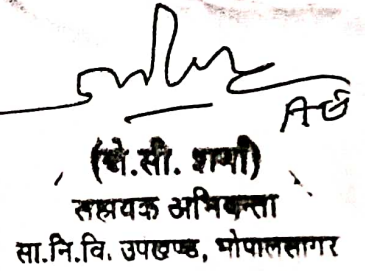 (के.सी. शर्मा)
सहायक अभियन्ता
सा.नि.वि. उपखण्ड, भोपालसागर